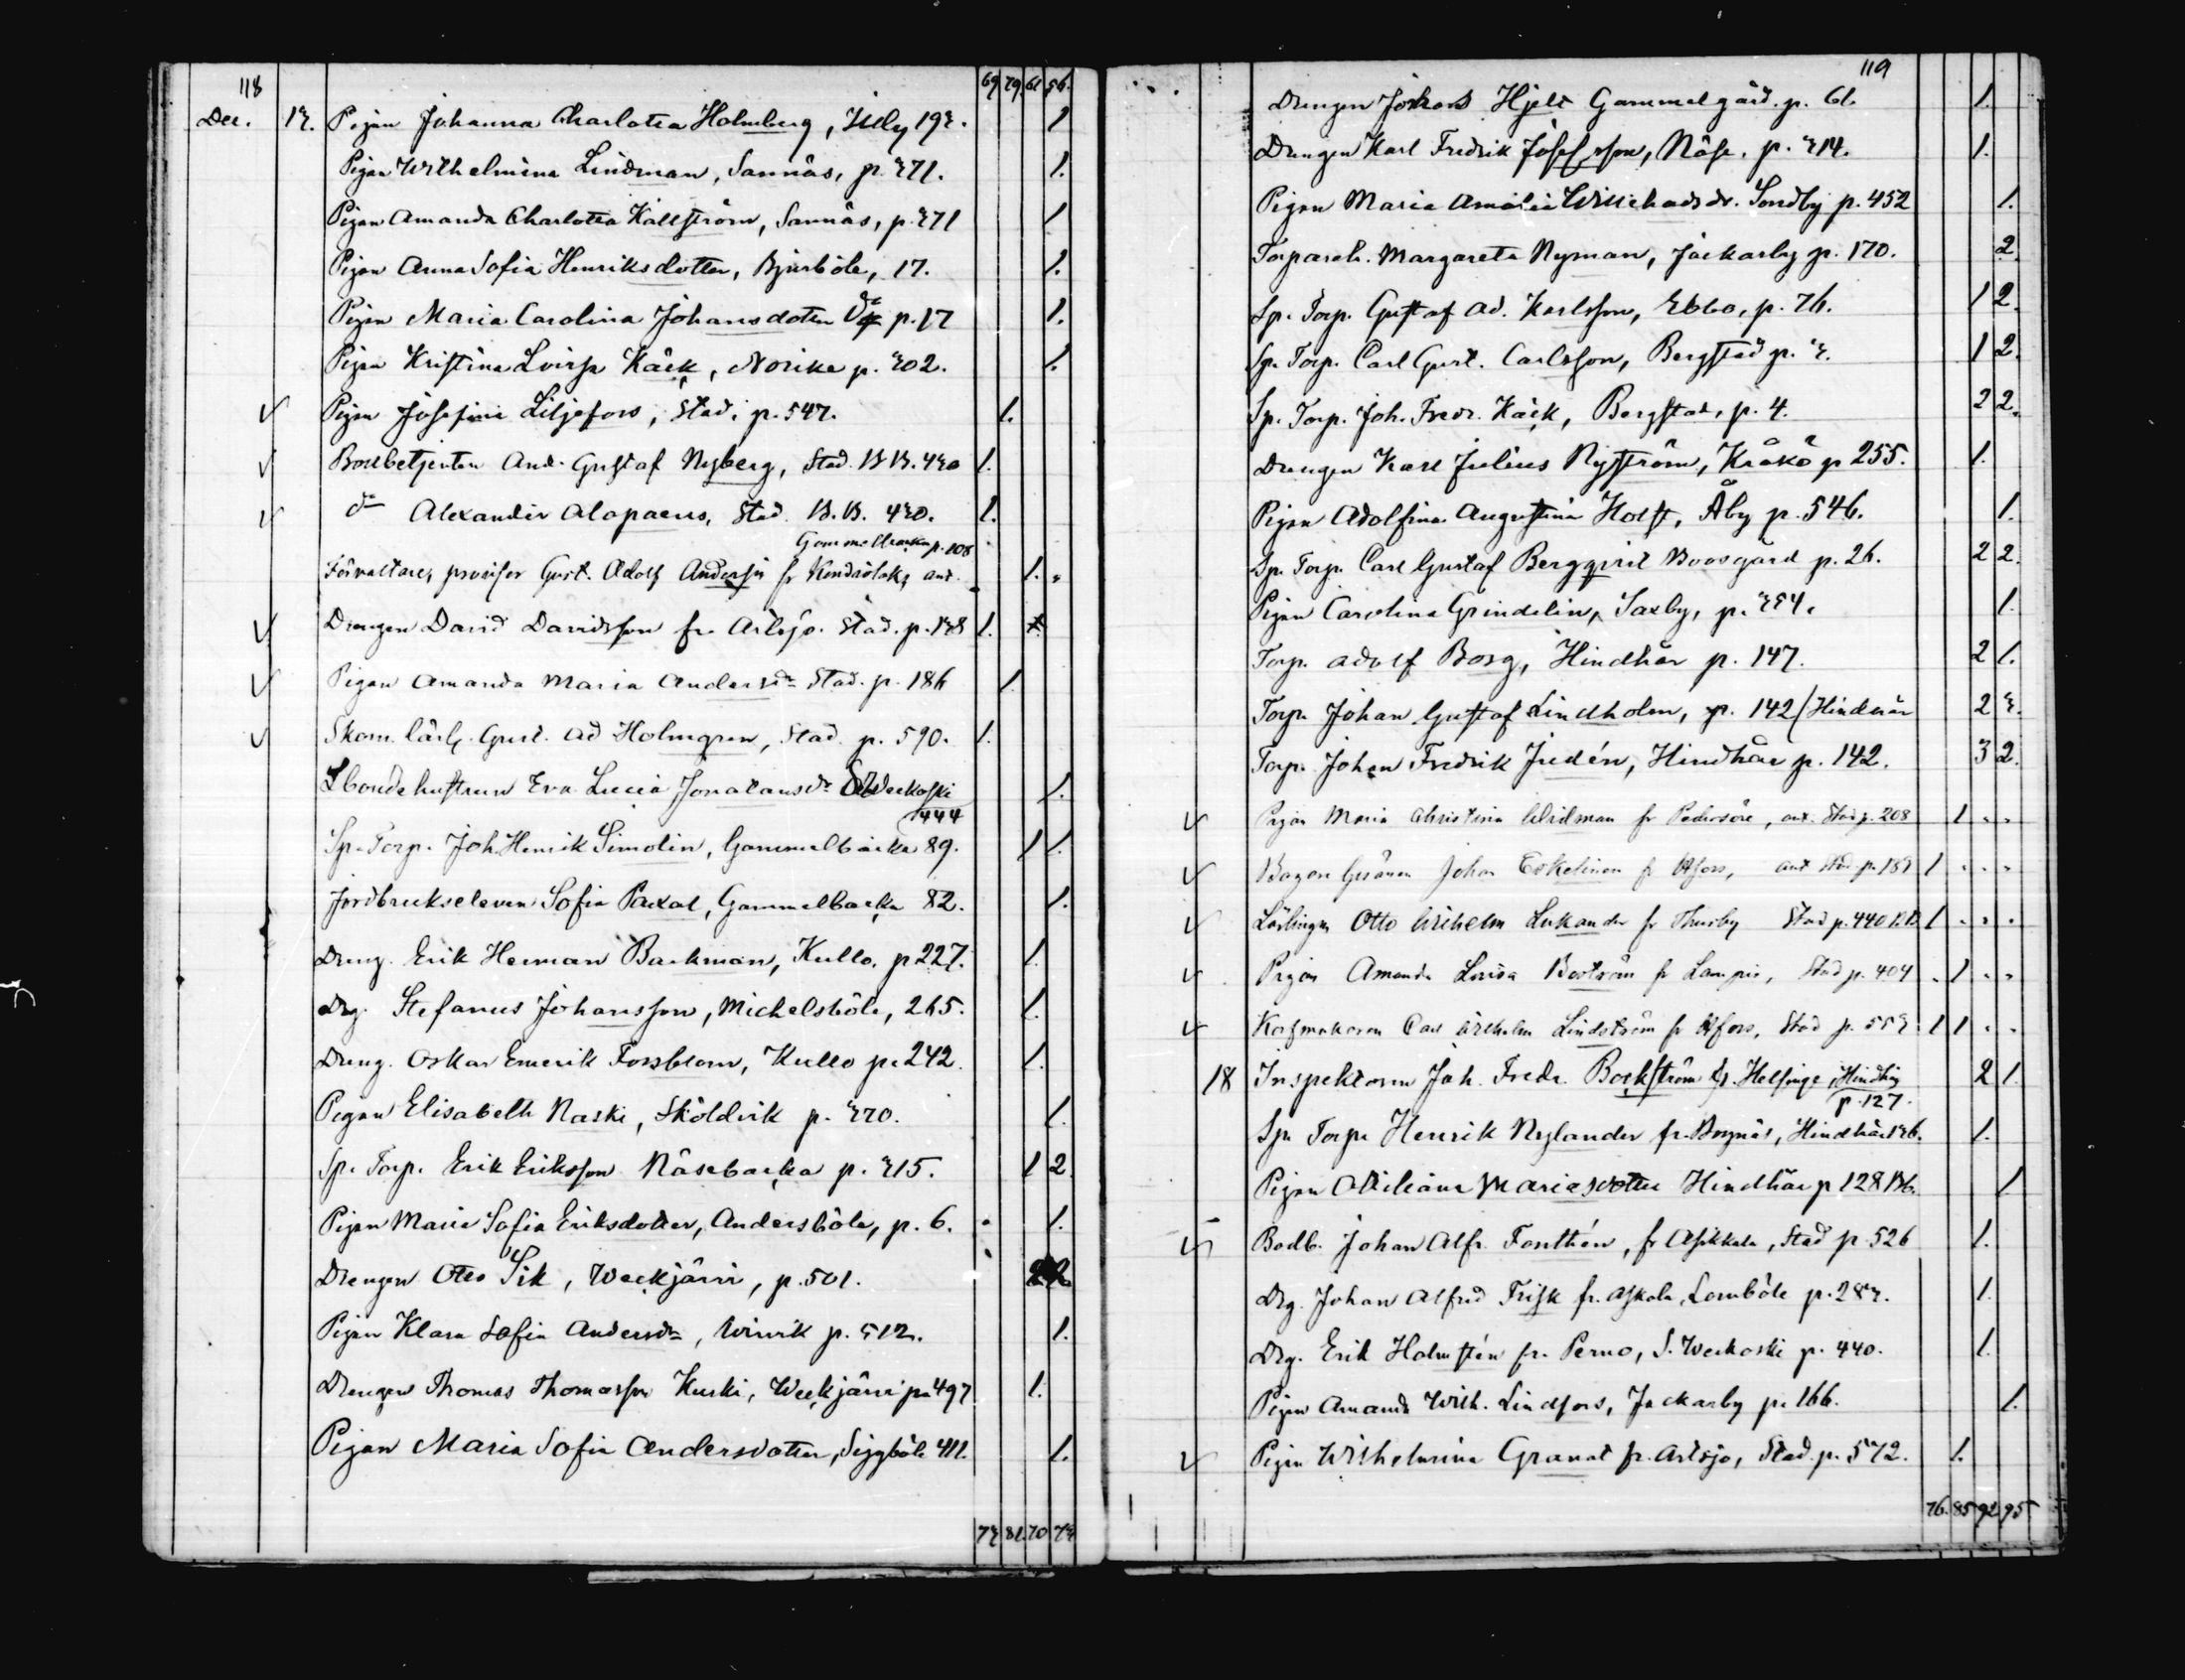 118
69 79 61 56.
Dec. 13. Pigan Johanna Charlotta Holmberg, Illby 193. 1
Pigan Wilhelmina Lindman, Sannäs, p. 371. 1.
Pigan Amanda Charlotta Källström, Sannäs, p. 371 1
Pigan Anna Sofia Henriksdotter, Bjurböle, 17. 1.
Pigan Maria Carolina Johansdotter do p. 17 1.
Pigan Kristina Lovisa Käck, Norike p. 302. 1.
Pigan Josefina Liljefors, Stad. p. 547. 1.
Bodbetjenten And. Gustaf Nyberg, Stad. B.B. 430 1.
do Alexander Alopaeus, Stad. B.B. 430. 1.
Gammelbacka p. 108
Förvaltaren, provisor Gust. Adolf Andersin fr 1.
Drengen David Davidsson fr. Artsjö. Stad. p. 138 1.
Pigan Amanda Maria Andersdr Stad. p. 186 1
Skom. lärl. Gust. Ad Holmgren, Stad. p. 590. 1.
Eva Lucia Jonatansdr 1.
444
Sp. Torp. Joh. Henrik Simolin, Gammelbacka 89. 1 1.
Jordbrukseleven Sofia Paxal, Gammelbacka 82. 1.
Dreng. Erik Herman Backman, Kullo, p 227. 1.
Drg. Stefanus Johansson, Michelsböle, 265. 1.
Dreng. Oskar Emerik Forsblom, Kullo p. 242. 1.
Pigan Elisabeth Naski, Sköldvik p. 370. 1.
Sp. Torp. Erik Eriksson Näsebacka p. 315. 1 2
Pigan Maria Sofia Eriksdotter, Andersböle, p. 6. 1.
Drengen Otto Sik, Weckjärvi, p. 501.
Pigan Klara Sofia Andersdr, Wirvik p. 512. 1.
Drengen Thomas Thomasson Kuski, Weckjärvi p. 497 1.
Pigan Maria Sofia Andersdotter, Siggböle 411. 1.
73 81. 70 73
119
Drengen Hjelt Gammelgård. p. 61. 1.
Drengen Karl Fredrik Josefsson, Näse. p. 314. 1.
Pigan Maria Amalia Willehadsdr. Sondby p. 452 1.
Torpareh. Margareta Nyman, Jackarby p. 170. 2
Sp. Torp. Gustaf Ad. Karlsson, Ebbo, p. 76. 1 2.
Sp. Torp. Carl Gust. Carlsson, Bergstad p. 3. 1 2.
Sp. Torp. Joh. Fredr. Käck, Bergstad, p. 4. 2 2.
Drengen Karl Julius Nyström, Kråkö p 255. 1.
Pigan Adolfina Augustina Holst, Åby p. 546. 1.
Sp. Torp. Carl Gustaf Bergqvist Boosgård p. 26. 2 2.
Pigan Carolina Grindelin, Saxby, p. 354. 1.
Torp. Adolf Borg, Hindhår p. 147. 2 1.
Torp. Johan Gustaf Lindholm, p. 142 / Hindhår 2 3.
Torp. Johan Fredrik Fredén, Hindhår p. 142. 3 2.
Pigan Maria Christina Widman fr Pedersöre, ant. Stad p. 208 1
Bagare Johan Eskelinen fr Hfors, ant Stad p. 189 1
Lärlingen Otto Wilhelm Lukander fr Thusby Stad p. 440 B.B. 1
Pigan Amanda Lovisa Boström fr Lampis, Stad p. 404 1
Korfmakaren Carl Wilhelm Lindström fr Hfors, Stad p. 553 1 1
18 Inspektoren Joh. Fredr. Bockström fr. Helsinge, Hindhår 2 1.
p. 127.
Sp. Torp. Henrik Nylander fr. Borgnäs, Hindhår 136. 1.
Pigan Mariasdotter Hindhår p 128 1
Bodb. Johan Alfr. Fonthén, fr Asikkala, Stad p 526 1.
Drg. Johan Alfred Frisk fr. Askola, Lomböle p. 283. 1.
Drg. Erik Holmstén fr. Perno, S. Weckoski p. 440. 1.
Pigan Amanda Wilh. Lindfors, Jackarby p. 166. 1.
Pigan Wilhelmina Granat fr. Artsjö, Stad. p. 572. 1.
76. 85 92 95